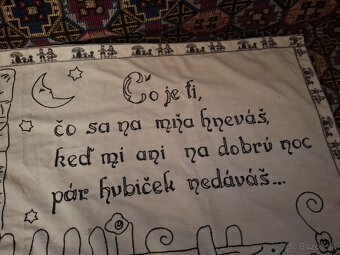 Čo je ti,
čo sa na mňa hneváš,
keď mi ani na dobrú noc
pár hubiček nedáváš...
Bazoš